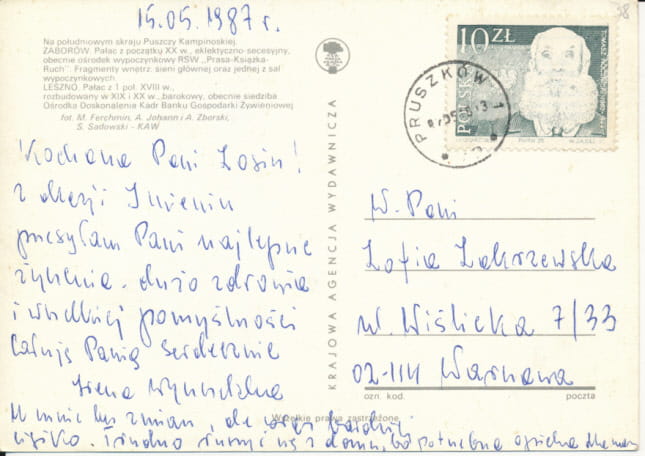 15.05.1987 r.
Na południowym skraju Puszczy Kampinoskiej.
ZABORÓW. Pałac z początku XX w., eklektyczno-secesyjny,
obecnie ośrodek wypoczynkowy RSW „Prasa-Książka-
Ruch”. Fragmenty wnętrz: sieni głównej oraz jednej z sal
wypoczynkowych.
LESZNO. Pałac z 1 poł. XVIII w.,
rozbudowany w XIX i XX w., barokowy, obecnie siedziba
Ośrodka Doskonalenia Kadr Banku Gospodarki Żywnościowej
fot. M. Ferchmin, A. Johann i A. Zborski,
S. Sadowski - KAW
Kochana Pani Zosiu!
z okazji Imienin
przesyłam Pani najlepsze
życzenia. dużo zdrowia
i wielkiej pomyślności
Całuję Panią serdecznie
Irena
U mnie bez zmian, ale coraz bardziej
ciężko. Trudno ruszyć się z domu, bo potrzebna
KRAJOWA AGENCJA WYDAWNICZA
10 ZŁ
POLSKA
PRUSZKÓW 1
W. Pani
Zofia Zakrzewska
ul. Wiślicka 7/33
02-114 Warszawa
ozn. kod. poczta
Wszelkie prawa zastrzeżone